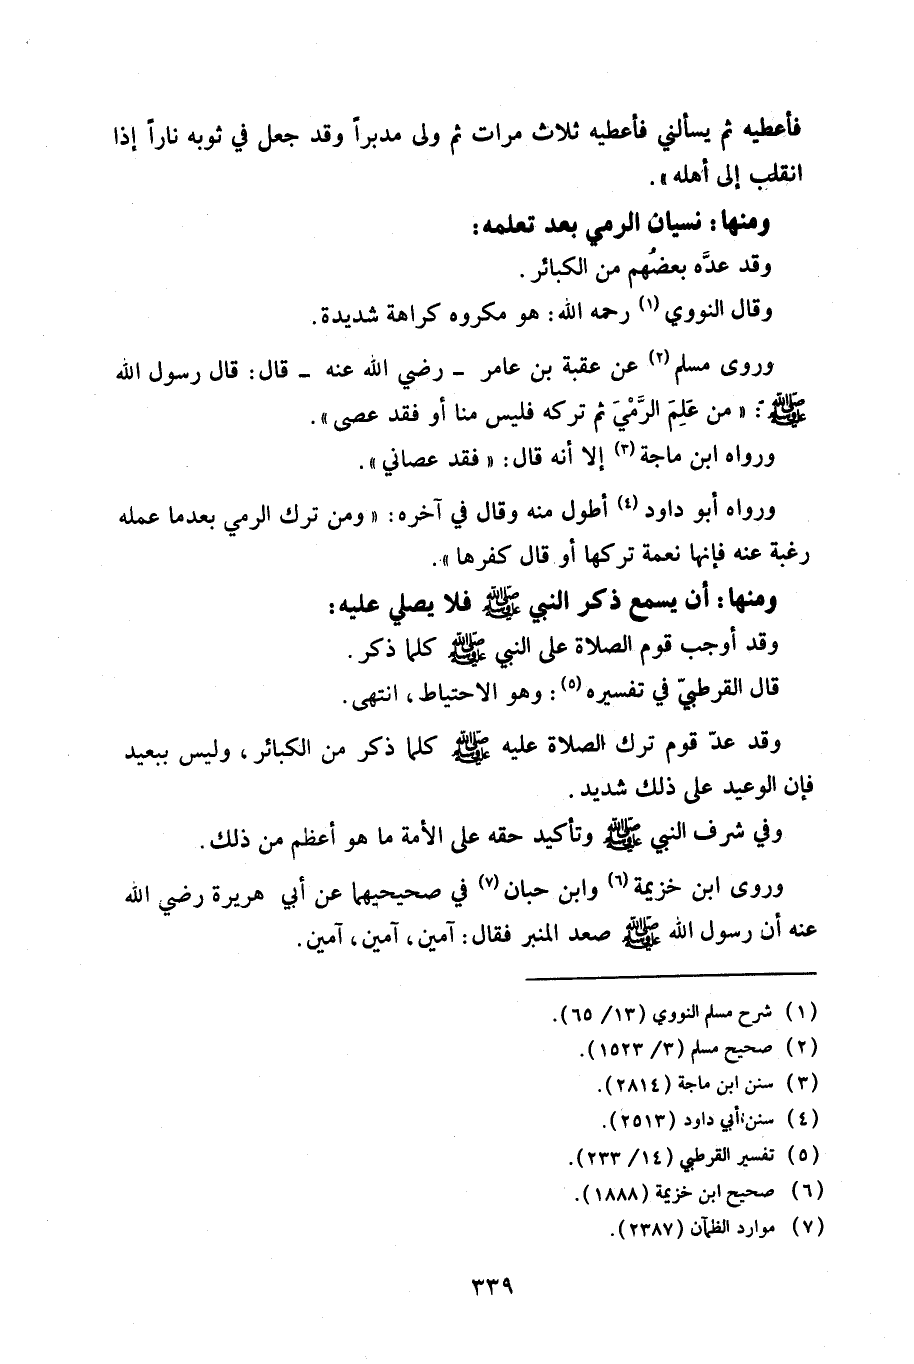 فأعطيه ثم يسألني فأعطيه ثلاث مرات ثم ولى مدبراً وقد جعل في ثوبه ناراً إذا
انقلب إلى أهله».
ومنها: نسيان الرمي بعد تعلمه:
وقد عدَّه بعضُهم من الكبائر.
وقال النووي(١) رحمه الله: هو مكروه كراهة شديدة.
وروى مسلم(٢) عن عقبة بن عامر - رضي الله عنه - قال: قال رسول الله
ﷺ: «من عَلِمَ الرَّمْيَ ثم تركه فليس منا أو فقد عصى».
ورواه ابن ماجة(٣) إلا أنه قال: «فقد عصاني».
ورواه أبو داود(٤) أطول منه وقال في آخره: «ومن ترك الرمي بعدما عمله
رغبة عنه فإنها نعمة تركها أو قال كفرها».
ومنها: أن يسمع ذكر النبي ﷺ فلا يصلي عليه:
وقد أوجب قوم الصلاة على النبي ﷺ كلما ذكر.
قال القرطبيّ في تفسيره(٥): وهو الاحتياط، انتهى.
وقد عدّ قوم ترك الصلاة عليه ﷺ كلما ذكر من الكبائر، وليس ببعيد
فإن الوعيد على ذلك شديد.
وفي شرف النبي ﷺ وتأكيد حقه على الأمة ما هو أعظم من ذلك.
وروى ابن خزيمة(٦) وابن حبان(٧) في صحيحيهما عن أبي هريرة رضي الله
عنه أن رسول الله ﷺ صعد المنبر فقال: آمين، آمين، آمين.
(١) شرح مسلم النووي (١٣/ ٦٥).
(٢) صحيح مسلم (٣/ ١٥٢٣).
(٣) سنن ابن ماجة (٢٨١٤).
(٤) سنن أبي داود (٢٥١٣).
(٥) تفسير القرطبي (١٤/ ٢٣٣).
(٦) صحيح ابن خزيمة (١٨٨٨).
(٧) موارد الظمآن (٢٣٨٧).
٣٣٩